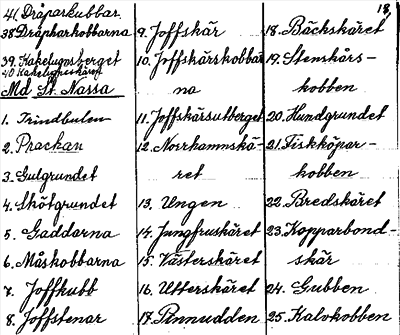 18.
41. Dråparkubbar.
38 Dråpharkobbarna
39. Kakelugnsberget
40 Kakelugnsskäret
Md St. Nassa
1. Trindbulen
2. Prackan
3. Gulgrundet
4. Skötgrundet
5. Gaddarna
6. Måskobbarna
7. Joffkubb
8. Joffstenar
9. Joffskär
10. Joffskärskobbar
na
11. Joffskärsutberget
12. Norrhamnskä-
ret
13. Ungen
14. Jungfruskäret
15. Västerskäret
16. Utterskäret
17. Pinnudden
18. Bäckskäret
19. Stenskärs-
kobben
20. Hundgrundet
21. Fiskköpar-
kobben
22. Bredskäret
23. Kopparbond-
skär
24. Gubben
25. Kalvkobben